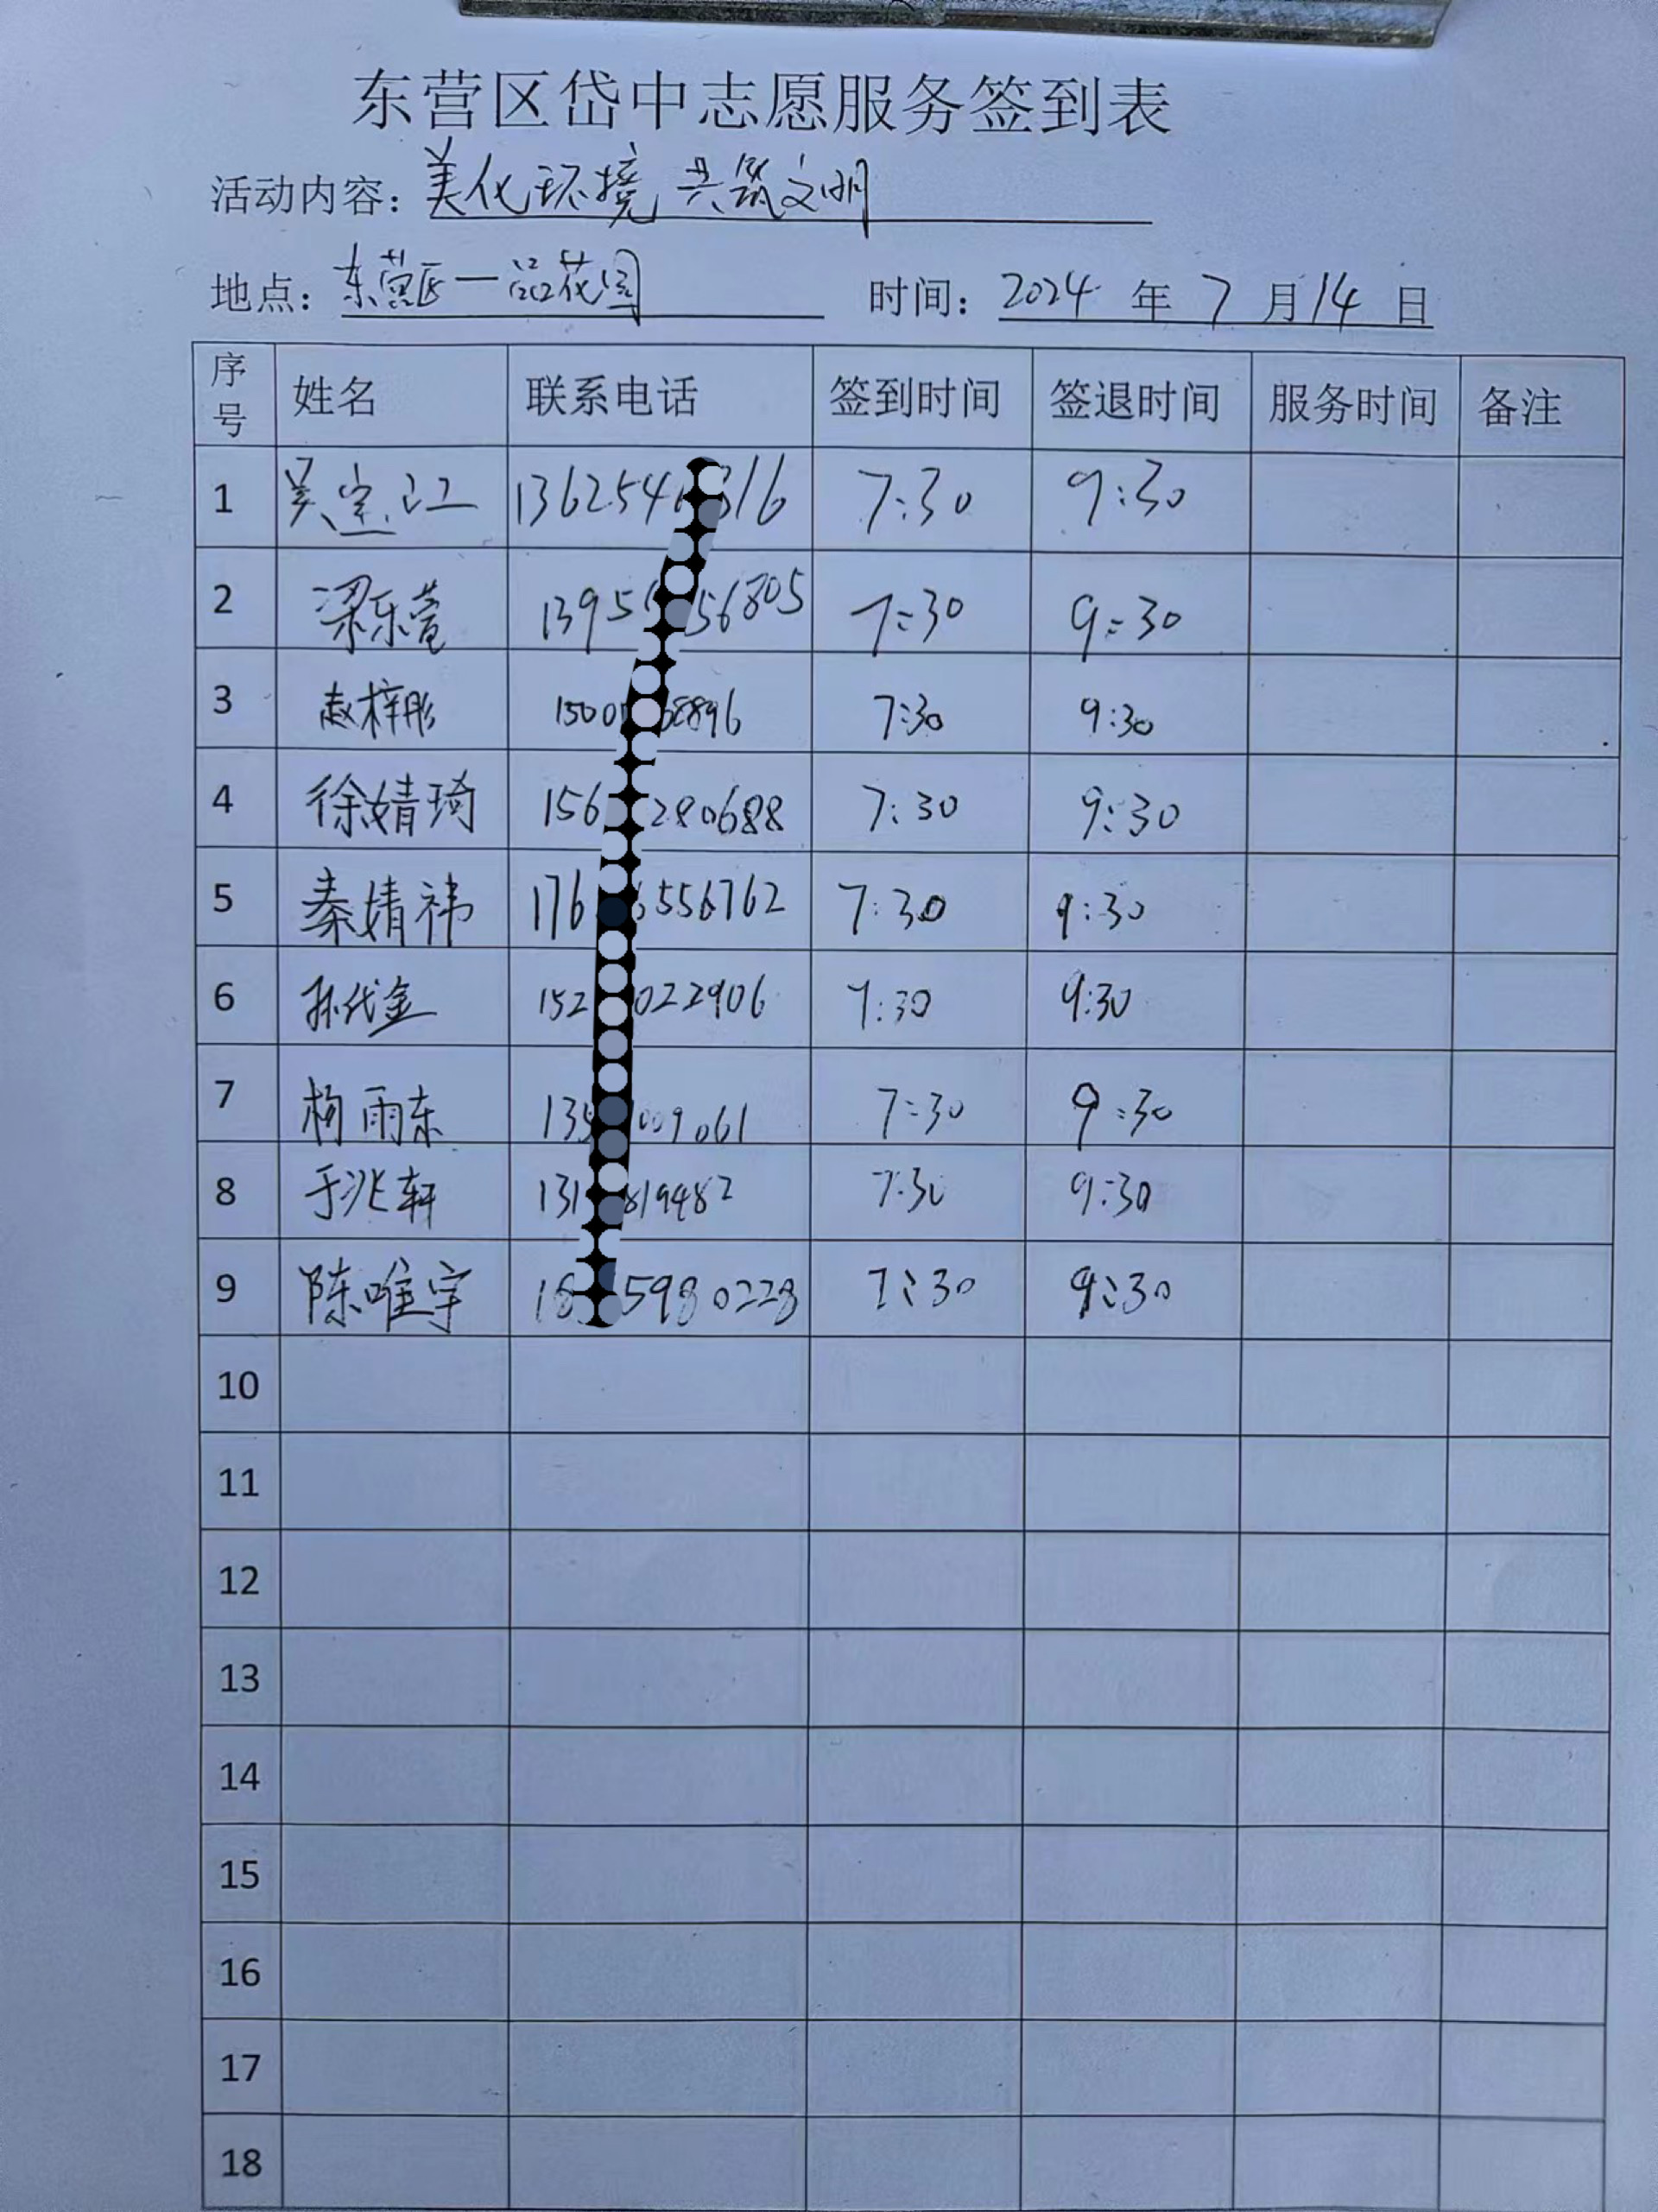 东营区岱中志愿服务签到表
活动内容：美化环境 共筑文明
地点：东营区一品花园 时间：2024 年 7 月 14 日
序号 姓名 联系电话 签到时间 签退时间 服务时间 备注
1 吴宝江 1362546 316 7:30 9:30
2 梁乐萱 1395 56805 7:30 9:30
3 赵梓彤 1500 8896 7:30 9:30
4 徐婧琦 156 280688 7:30 9:30
5 秦婧祎 176 556762 7:30 9:30
6 孙代金 152 022906 7:30 9:30
7 杨雨东 135 009061 7:30 9:30
8 于兆轩 131 819482 7:30 9:30
9 陈唯宇 18 5980228 7:30 9:30
10
11
12
13
14
15
16
17
18